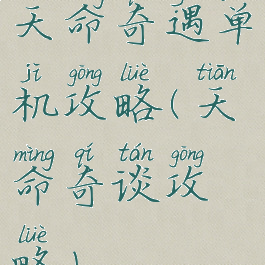 天命奇遇单
jī gōng lüè tiān
机攻略(天
mìng qí tán gōng
命奇谈攻
lüè
略)